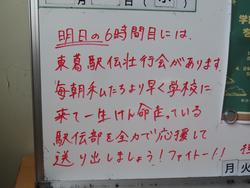 月 (水)
明日の6時間目には、
東葛駅伝壮行会があります。
毎朝私たちより早く学校に
来て一生けん命走っている
駅伝部を全力で応援して
送り出しましょう！ファイトー！！
月 火